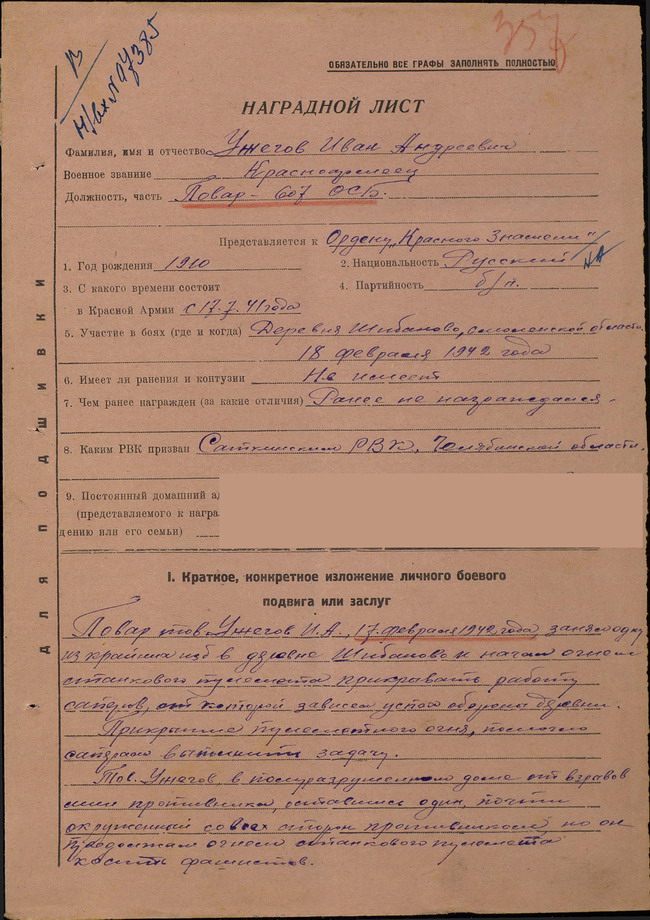 В
И/вх № 07385
357
ОБЯЗАТЕЛЬНО ВСЕ ГРАФЫ ЗАПОЛНЯТЬ ПОЛНОСТЬЮ
НАГРАДНОЙ ЛИСТ
Фамилия, имя и отчество Ужегов Иван Андреевич
Военное звание Красноармеец
Должность, часть Повар – 607 ОСБ.
Представляется к Ордену „Красного Знамени"
1. Год рождения 1910 2. Национальность Русский
3. С какого времени состоит 4. Партийность б/п.
в Красной Армии с 17.7.41 года
5. Участие в боях (где и когда) Деревня Шибаново, Смоленской области.
18 февраля 1942 года
6. Имеет ли ранения и контузии Не имеет
7. Чем ранее награжден (за какие отличия) Ранее не награждался.
8. Каким РВК призван Саткинским РВК, Челябинской области.
9. Постоянный домашний ад
(представляемого к награ
дению или его семьи)
ДЛЯ ПОДШИВКИ
I. Краткое, конкретное изложение личного боевого
подвига или заслуг
Повар тов. Ужегов И.А., 17 февраля 1942 года занял одну
из крайних изб в деревне Шибаново и начал огнем
станкового пулемета прикрывать работу
саперов, от которой зависел успех обороны деревни.
Прикрытие пулеметного огня, помогло
саперам выполнить задачу.
Тов. Ужегов, в полуразрушенном доме от взрывов
мин противника, оставшись один, почти
окруженный со всех сторон противником, но он
продолжал огнем станкового пулемета
косить фашистов.